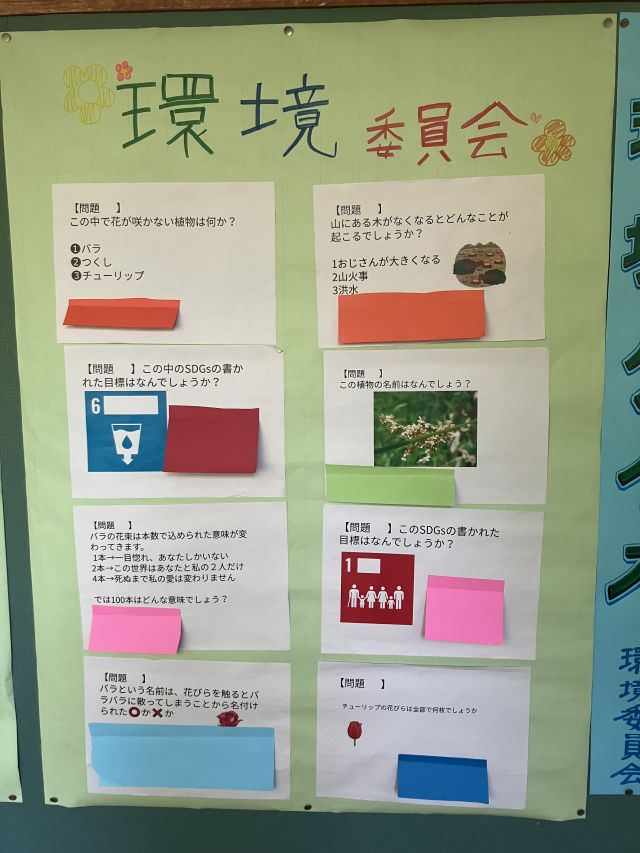 環境委員会
【問題　】
この中で花が咲かない植物は何か？
❶バラ
❷つくし
❸チューリップ
【問題　】
山にある木がなくなるとどんなことが
起こるでしょうか？
1おじさんが大きくなる
2山火事
3洪水
【問題　】この中のSDGsの書か
れた目標はなんでしょうか？
6
【問題　】
この植物の名前はなんでしょう？
【問題　】
バラの花束は本数で込められた意味が変
わってきます。
1本→一目惚れ、あなたしかいない
2本→この世界はあなたと私の２人だけ
4本→死ぬまで私の愛は変わりません
では100本はどんな意味でしょう？
【問題　】このSDGsの書かれた
目標はなんでしょうか？
1
【問題　】
バラという名前は、花びらを触るとバ
ラバラに散ってしまうことから名付け
られた⭕か❌か
【問題　】
チューリップの花びらは全部で何枚でしょうか
環境委員会